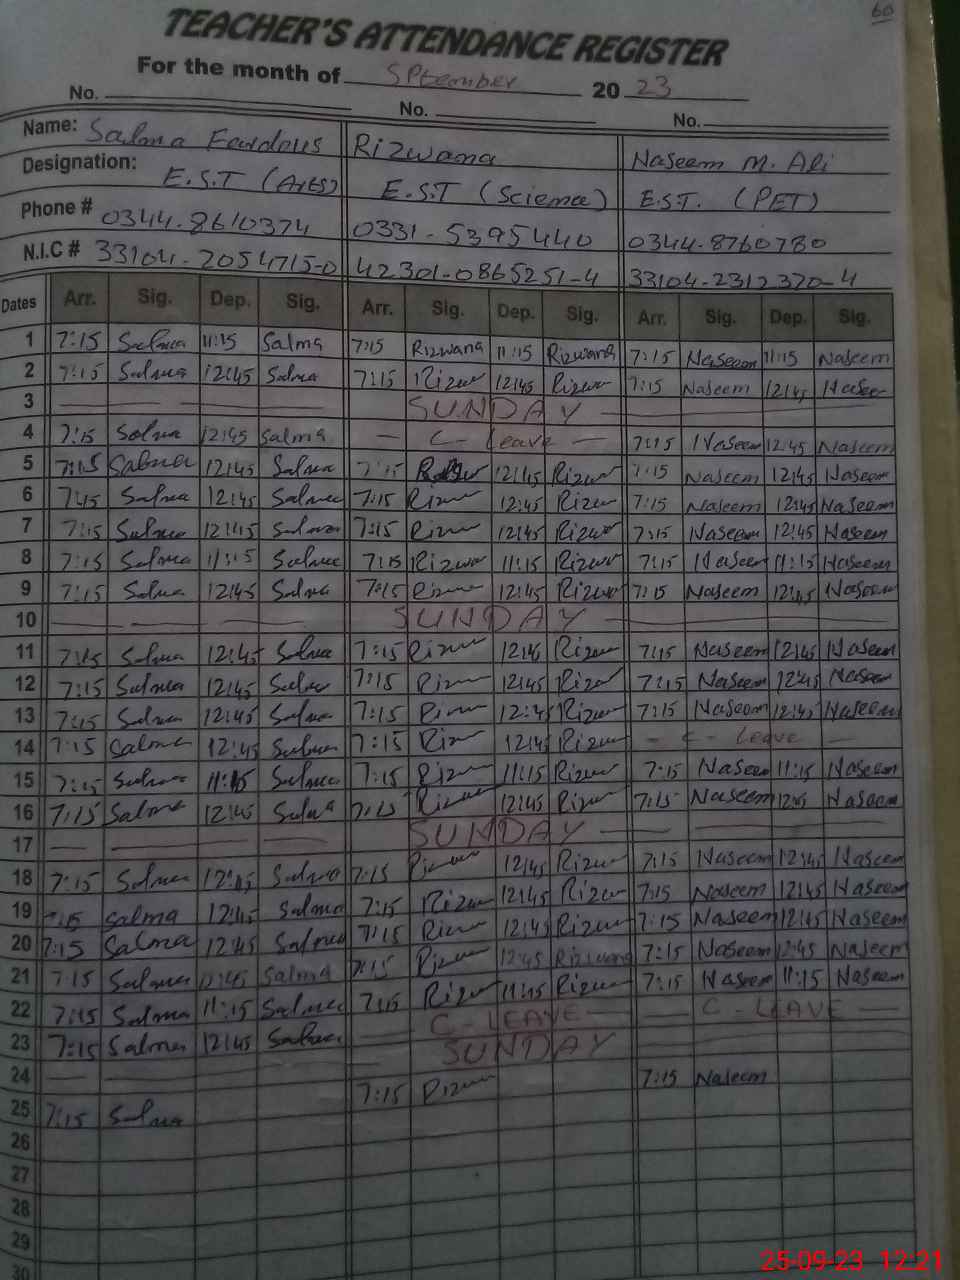 60
TEACHER'S ATTENDANCE REGISTER
For the month of SPtember 2023
No. No. No.
Name: Salma Fardous Rizwana Naseem M. Ali
Designation: E.S.T (Arts) E.S.T (Science) E.S.T. (PET)
Phone # 0344-8610374 0331-5395440 0344-8760780
N.I.C # 33104-2054715-0 42301-0865251-4 33104-2312370-4
Dates Arr. Sig. Dep. Sig. Arr. Sig. Dep. Sig. Arr. Sig. Dep. Sig.
1 7:15 Salma 11:15 Salma 7:15 Rizwana 11:15 Rizwana 7:15 Naseem 11:15 Naseem
2 7:15 Salma 12:45 Salma 7:15 Rizwa 12:45 Rizwa 7:15 Naseem 12:45 Naseem
3 SUNDAY
4 7:15 Salma 12:45 Salma C - Leave 7:15 Naseem 12:45 Naseem
5 7:15 Salma 12:45 Salma 7:15 12:45 Rizwa 7:15 Naseem 12:45 Naseem
6 7:15 Salma 12:45 Salma 7:15 Rizwa 12:45 Rizwa 7:15 Naseem 12:45 Naseem
7 7:15 Salma 12:45 Salma 7:15 Rizwa 12:45 Rizwa 7:15 Naseem 12:45 Naseem
8 7:15 Salma 11:15 Salma 7:15 Rizwa 11:15 Rizwa 7:15 Naseem 11:15 Naseem
9 7:15 Salma 12:45 Salma 7:15 Rizwa 12:45 Rizwa 7:15 Naseem 12:45 Naseem
10 SUNDAY
11 7:15 Salma 12:45 Salma 7:15 Rizwa 12:45 Rizwa 7:15 Naseem 12:45 Naseem
12 7:15 Salma 12:45 Salma 7:15 Rizwa 12:45 Rizwa 7:15 Naseem 12:45 Naseem
13 7:15 Salma 12:45 Salma 7:15 Rizwa 12:45 Rizwa 7:15 Naseem 12:45 Naseem
14 7:15 Salma 12:45 Salma 7:15 Rizwa 12:45 Rizwa C - Leave
15 7:15 Salma 11:15 Salma 7:15 Rizwa 11:15 Rizwa 7:15 Naseem 11:15 Naseem
16 7:15 Salma 12:45 Salma 7:15 Rizwa 12:45 Rizwa 7:15 Naseem 12:45 Naseem
17 SUNDAY
18 7:15 Salma 12:45 Salma 7:15 Rizwa 12:45 Rizwa 7:15 Naseem 12:45 Naseem
19 7:15 Salma 12:45 Salma 7:15 Rizwa 12:45 Rizwa 7:15 Naseem 12:45 Naseem
20 7:15 Salma 12:45 Salma 7:15 Rizwa 12:45 Rizwa 7:15 Naseem 12:45 Naseem
21 7:15 Salma 12:45 Salma 7:15 Rizwa 12:45 Rizwana 7:15 Naseem 12:45 Naseem
22 7:15 Salma 11:15 Salma 7:15 Rizwa 11:15 Rizwa 7:15 Naseem 11:15 Naseem
23 7:15 Salma 12:45 Salma C - LEAVE C - LEAVE
24 SUNDAY
25 7:15 Salma 7:15 Rizwa 7:15 Naseem
26
27
28
29
30
25-09-23 12:21